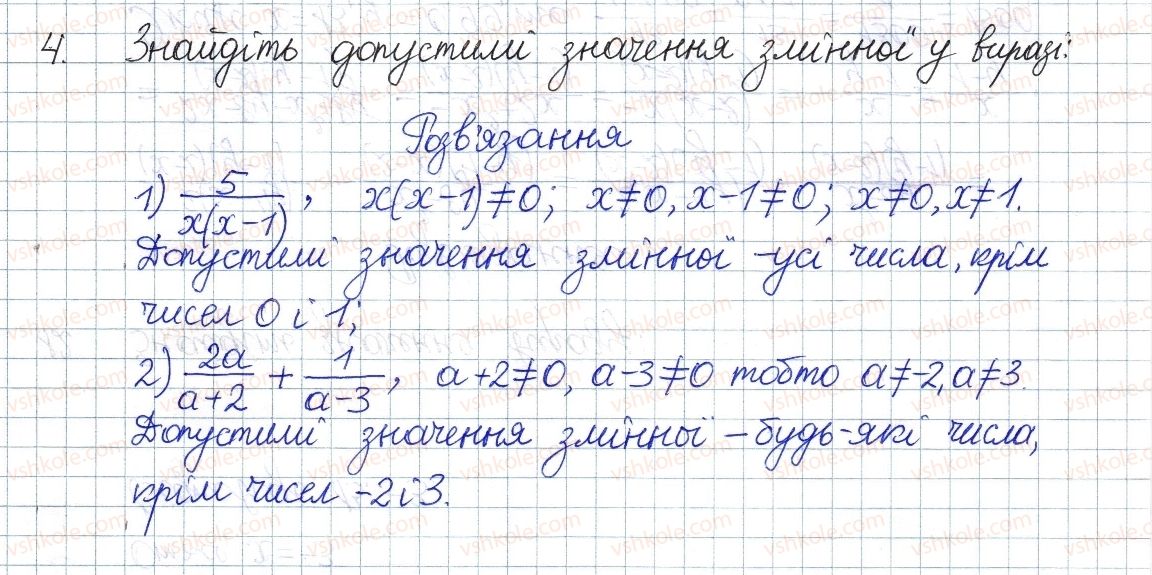 4. Знайдіть допустимі значення змінної у виразі:
Розв'язання
1) 5/x(x-1), x(x-1)≠0; x≠0, x-1≠0; x≠0, x≠1.
Допустимі значення змінної -усі числа, крім
чисел 0 і 1;
2) 2a/a+2 + 1/a-3, a+2≠0, a-3≠0 тобто a≠-2, a≠3.
Допустимі значення змінної - будь-які числа,
крім чисел -2 і 3.